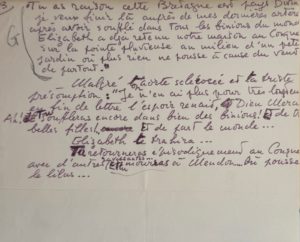 Tu as rendon cette Bretagne est pays Dieu
je veux finir là auprès de mes derniers actes
après avoir soufflé dans tous les binious du monde
Elizabeth a déjà retenu notre maison au Conquet
sur la pointe pluvieuse au milieu d'un petit
jardin où plus rien ne pousse à cause du vent
de partout.
Malgré et la triste
présomption : "je n'en ai plus pour très longtemps
fin de lettre l'espoir renait, Dieu Merci
souffleras encore dans bien des binious! de
belles filles, encore et de par le monde...
Elizabeth te
Tu retourneras épisodiquement au Conquet
avec d'autres tu mourras à Meudon où pousse
le lilas...